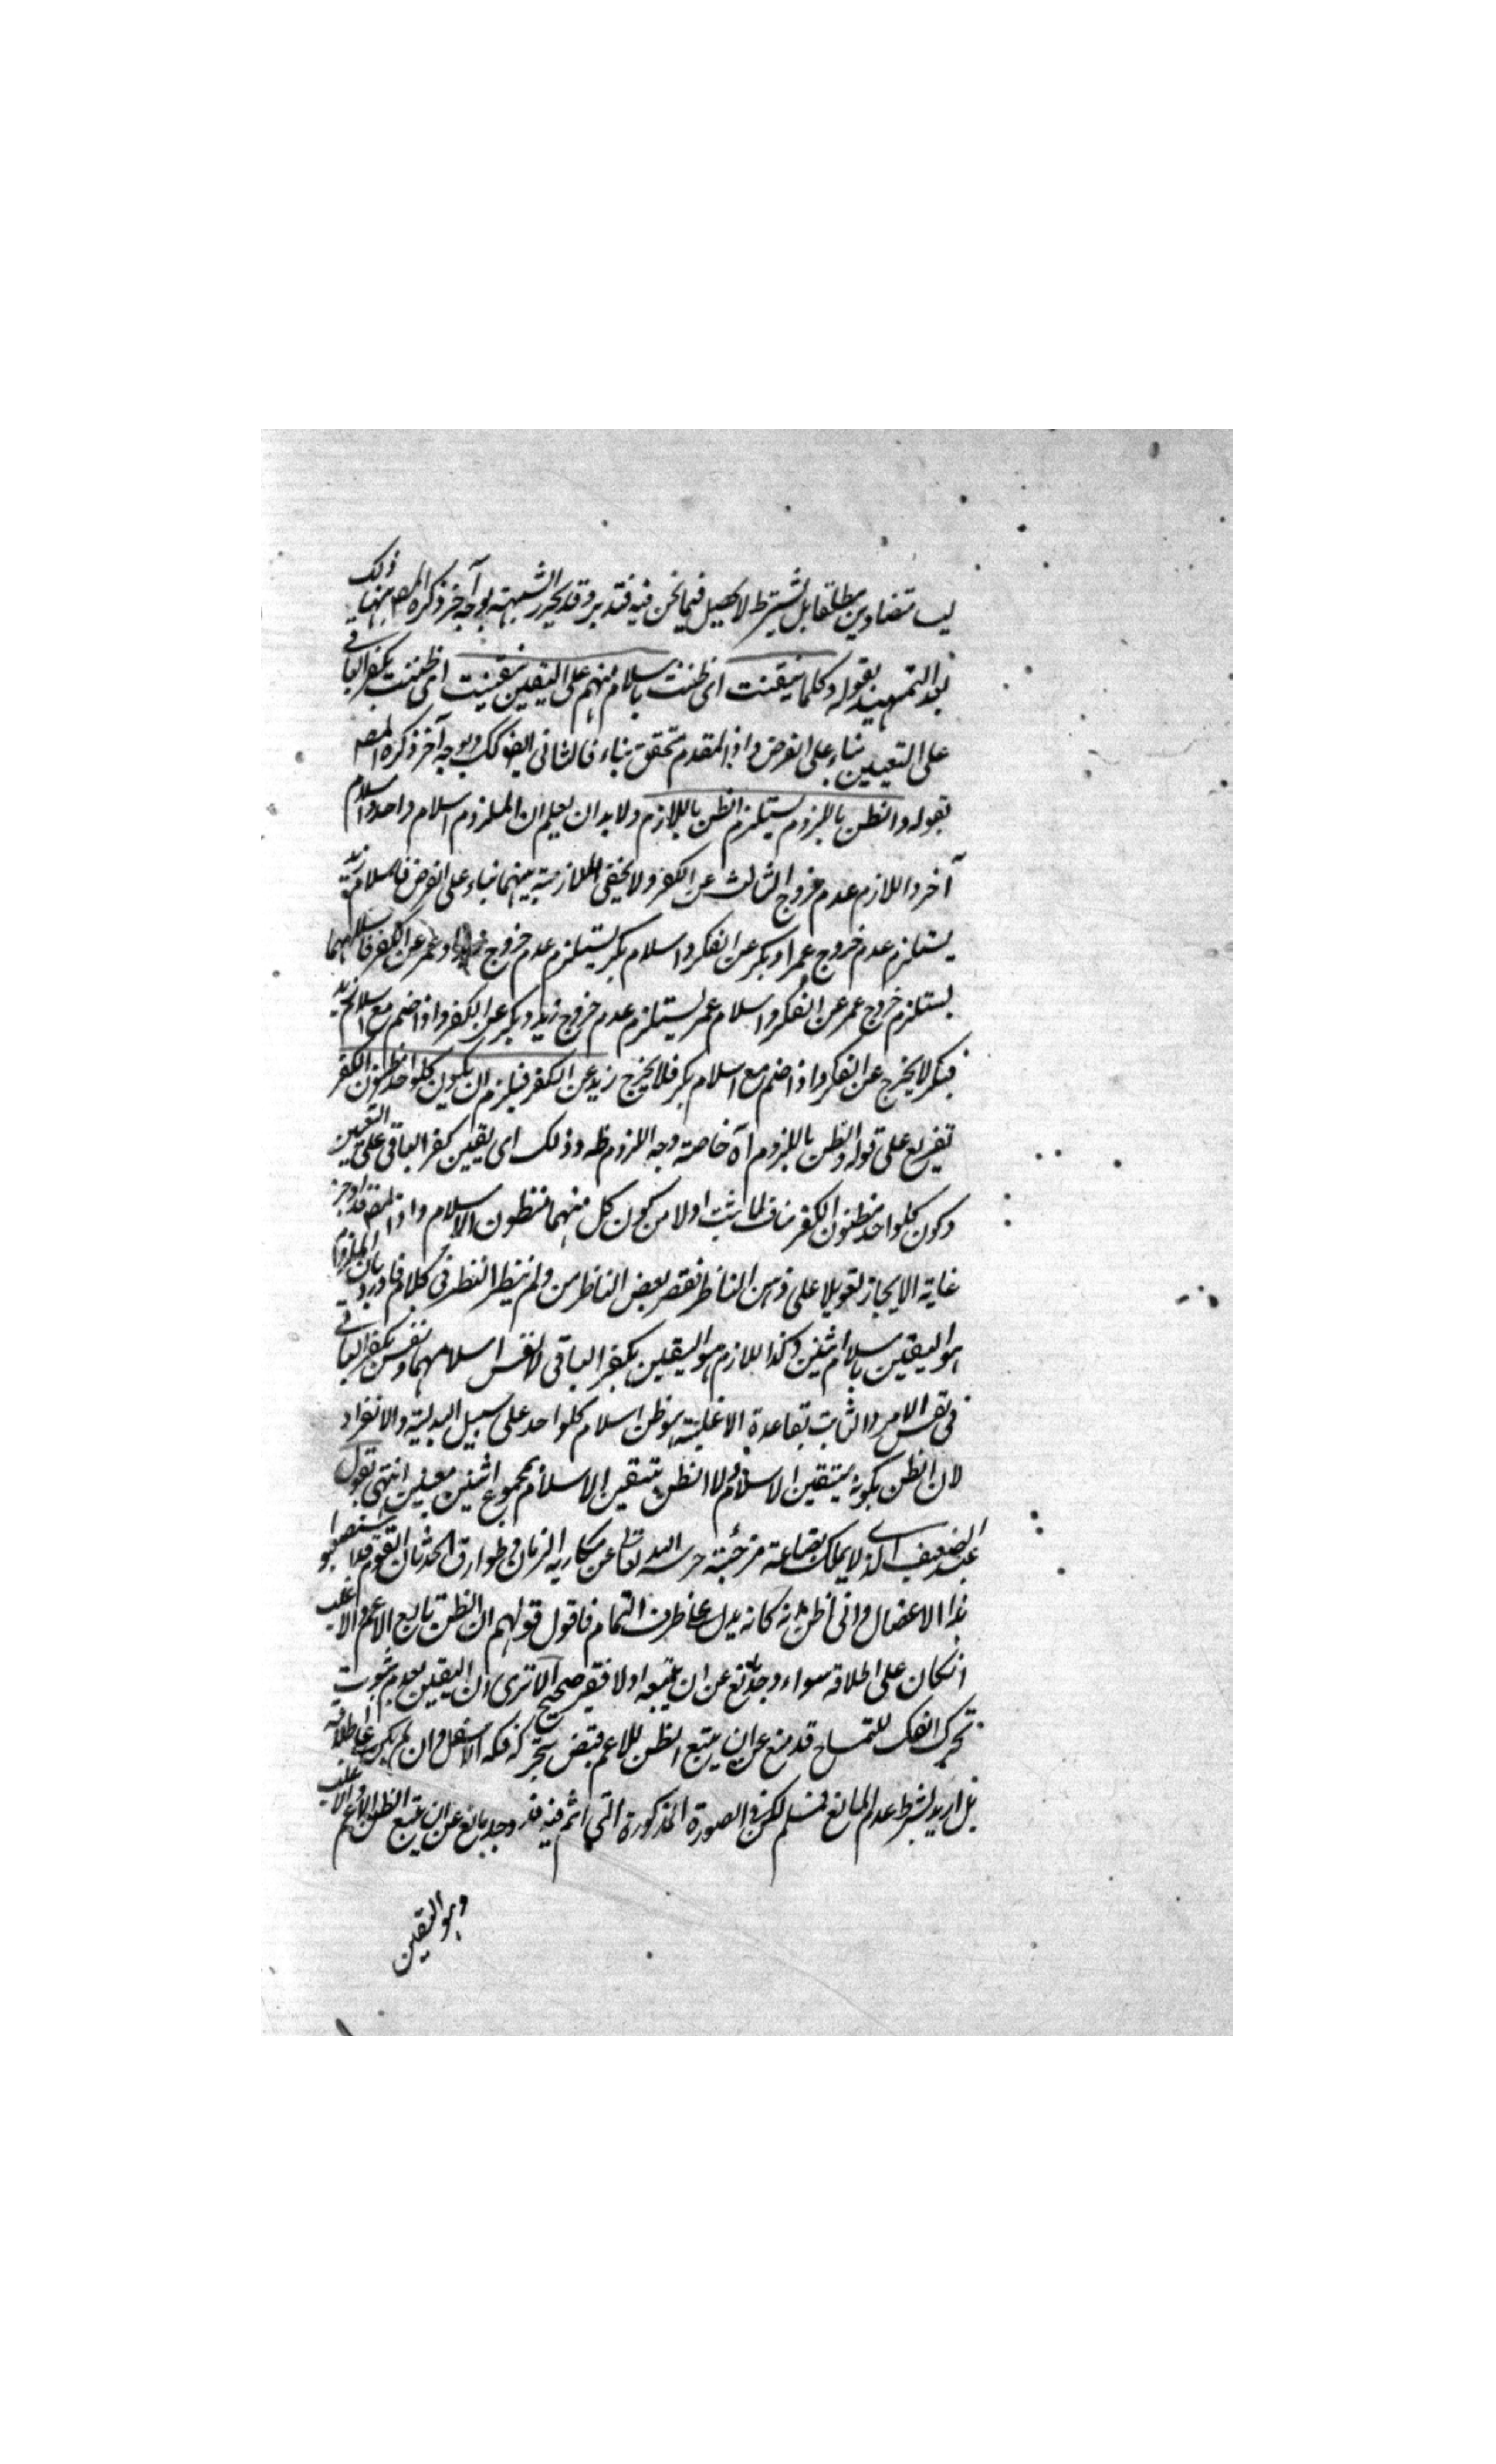 ليست متضادين مطلقا بل بشرط لا يحصل فيما نحن فيه فتدبر وقد يحرر الشبهة بوجه آخر ذكره المصـ منها ذلك
بعد التمهيد بقوله وكلما تيقنت اى ظننت باسلام منهم على اليقين تيقنت اى ظننت بكفر الباقى
على التعيين بناء على الفرض واذ المقدم متحقق بناء فالثانى ايضا كك وبوجه آخر ذكره المصـ
بقوله والظن بالملزوم يستلزم الظن باللازم ولا بد ان يعلم ان الملزوم اسلام واحد واسلام
آخر واللازم عدم خروج الثالث عن الكفر ولا يخفى الملازمة بينهما بناء على الفرض فاسلام زيد
يستلزم عدم خروج عمر او بكر عن الكفر واسلام بكر يستلزم عدم خروج وعمر عن الكفر فاسلامهما
يستلزم خروج عمر عن الكفر واسلام عمر يستلزم عدم خروج زيد وبكر عن الكفر واذا ضم مع اسلام زيد
فبكر لا يخرج عن الكفر واذا ضم مع اسلام بكر فلا يخرج زيد عن الكفر فيلزم ان يكون كلواحد مظنون الكفر
تفريع على قوله والظن بالملزوم آه خاصة وجه اللزوم ظه وذلك اى يقين كفر الباقى على التعيين
وكون كلواحد مظنون الكفر مناف لما ثبت اولا من كون كل منهما مظنون الاسلام واذا المصـ قد اوجز
غاية الايجاز تعويلا على ذهن الناظر فقصر بعض الناظرين ولم ينظر النظر فى كلام فاورد بان الملزوم
هو اليقين باسلام اثنين وكذا اللازم هو اليقين بكفر الباقى لا نفس اسلامهما ونفس كفر الباقى
فى نفس الامر والثابت بقاعدة الاغلبية هو ظن اسلام كلواحد على سبيل البدلية والانفراد
لان الظن بكونه متيقن الاسلام ولا الظن بتيقن الاسلام بمجموع اثنين معينين انتهى بقول
العبد الضعيف الذى لا يملك بضاعة مزجية حرسه الله تعالى عن مكاره الزمان وطوارق الحدثان القوم قد استصعبوا
هذا الاعضال وانى اظن انه كانه يدل على طرف التمام فاقول قولهم ان الظن تابع الاعم والاغلب
انكان على اطلاقه سواء وجد مانع عن ان يتبعه اولا فغير صحيح الا ترى ان اليقين بعدم ثبوت
تحرك الفك للتمساح قد منع عن ان يتبع الظن للاعم فيقضى بتحركه فكه الاسفل وان لم يكن على اطلاقه
بل اريد بشرط عدم المانع فمسلم لكن فى الصورة المذكورة التى انتم فيه قد وجد مانع عن ان يتبع الظن الاعم والاغلب
وهو اليقين